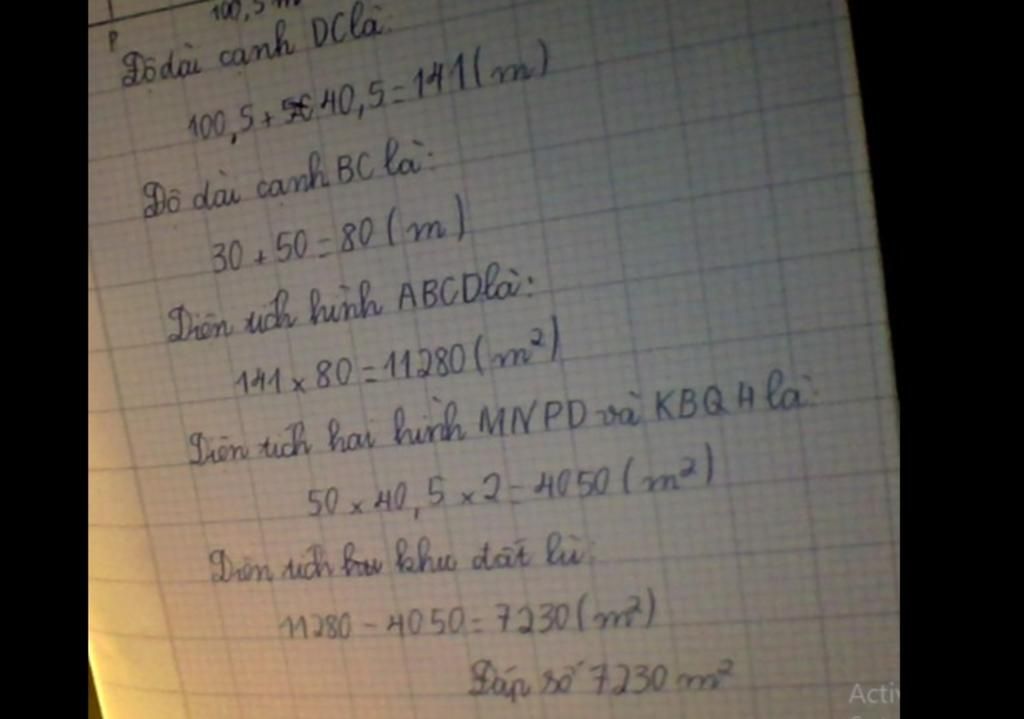 100,5 m
P
Độ dài cạnh DC là:
100,5 + 40,5 = 141 (m)
Độ dài cạnh BC là:
30 + 50 = 80 (m)
Diện tích hình ABCD là:
141 x 80 = 11280 (m²)
Diện tích hai hình MNPD và KBQH là:
50 x 40,5 x 2 = 4050 (m²)
Diện tích khu đất là:
11280 - 4050 = 7230 (m²)
Đáp số 7230 m²
Acti